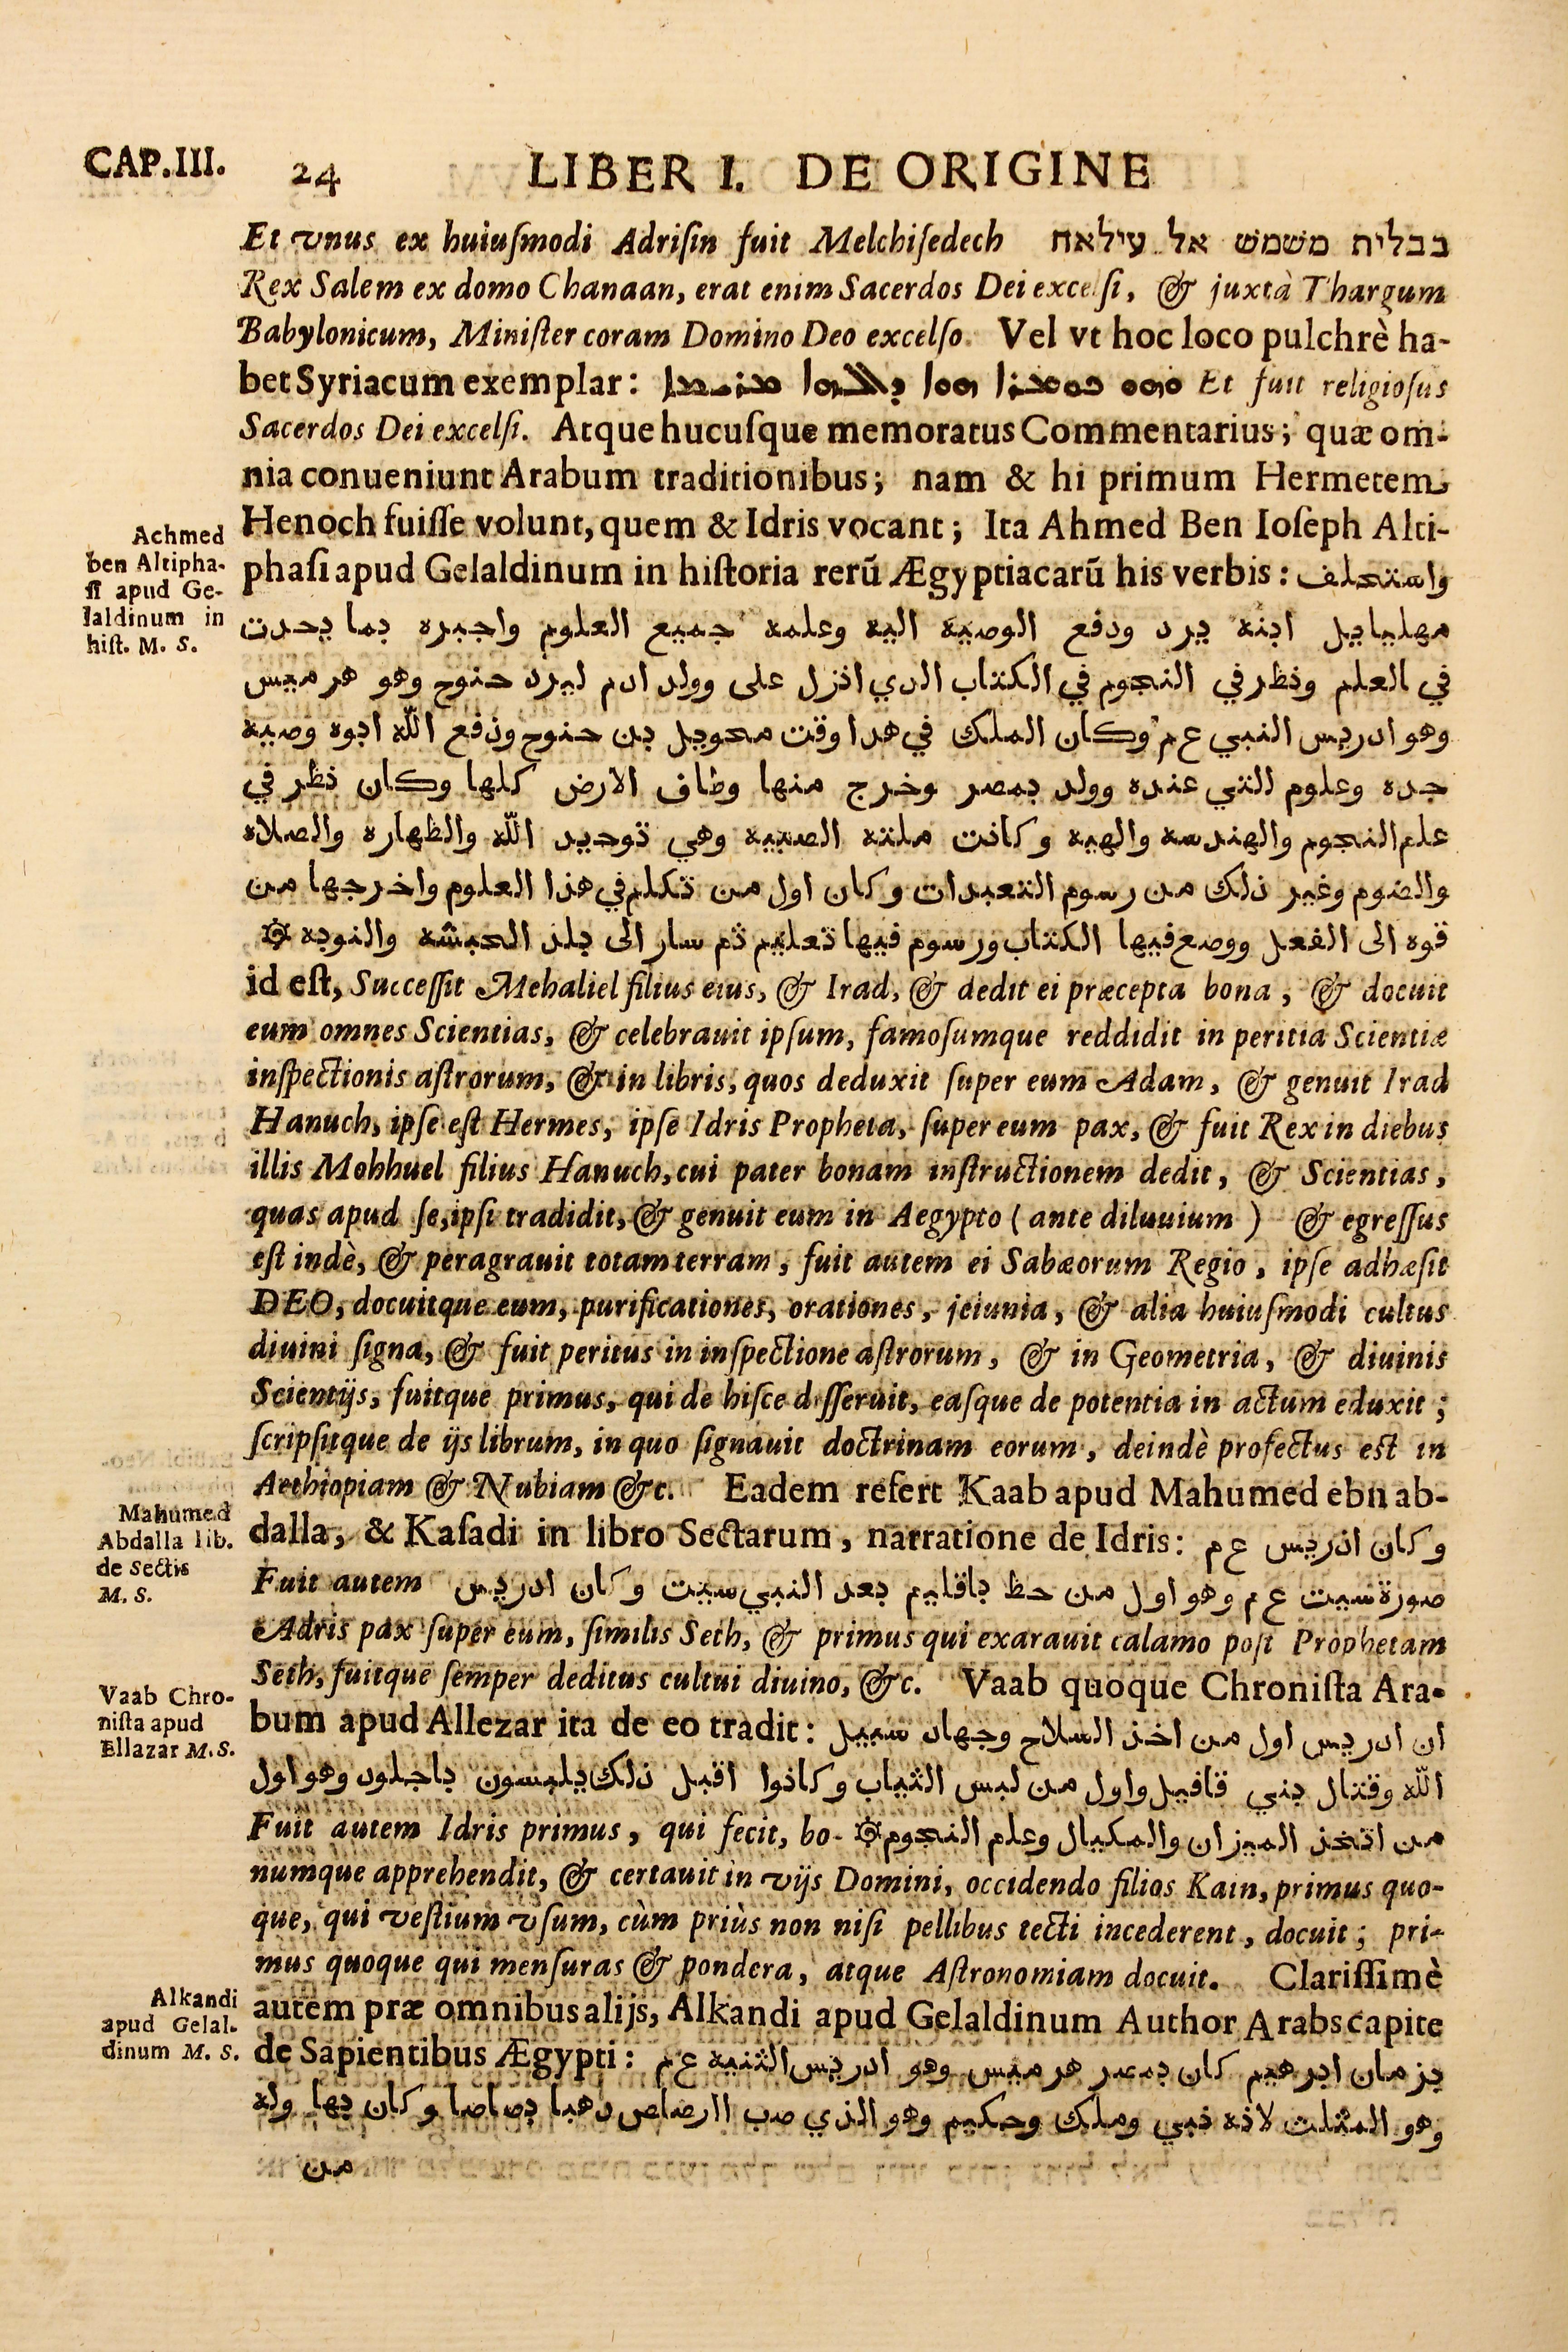 CAP.III. 24 LIBER I. DE ORIGINE
Et vnus ex huiuſmodi Adriſin fuit Melchiſedech בבלית משמש אל עילאח
Rex Salem ex domo Chanaan, erat enim Sacerdos Dei excelſi, & juxtà Thargum
Babylonicum, Miniſter coram Domino Deo excelſo. Vel vt hoc loco pulchrè ha-
bet Syriacum exemplar: ܘܗܘ ܟܘܡܪܐ ܗܘܐ ܕܐܠܗܐ ܡܪܝܡܐ Et fuit religioſus
Sacerdos Dei excelſi. Atque hucuſque memoratus Commentarius; quæ om-
nia conueniunt Arabum traditionibus; nam & hi primum Hermetem
Henoch fuiſſe volunt, quem & Idris vocant; Ita Ahmed Ben Ioſeph Alti-
phaſi apud Gelaldinum in hiſtoria rerũ Ægyptiacarũ his verbis: واستحلف
Achmed
ben Altipha-
ſi apud Ge-
laldinum in
hiſt. M. S.
مهليايل ابنه يرد ودفع الوصية اليه وعلمه جميع العلوم واجبره بما يحدت
في العلم ونظر في النجوم في الكتاب الدي انزل على وولد ادم ليرد حنوح وهو هرميس
وهو ادريس النبي ع م وكان الملك في هدا وقت محويل بن حنوح ودفع اللّه ابوه وصية
جده وعلوم التي عنده وولد بمصر وخرج منها وطاف الارض كلها وكان نظر في
علم النجوم والهندسه والهيه وكانت ملته الصبيه وهي توحيد اللّه والظهاره والصلاه
والضوم وغير ذلك من رسوم التعبدات وكان اول من تكلم في هذا العلوم واخرجها من
قوه الى الفعل ووضع فيها الكتاب ورسوم فيها تعليم ثم سار الى بلد الحبشه والنوبه ۞
id eſt, Succeſſit Mehaliel filius eius, & Irad, & dedit ei præcepta bona, & docuit
eum omnes Scientias, & celebrauit ipſum, famoſumque reddidit in peritia Scientiæ
inſpectionis aſtrorum, & in libris, quos deduxit ſuper eum Adam, & genuit Irad
Hanuch, ipſe eſt Hermes, ipſe Idris Propheta, ſuper eum pax, & fuit Rex in diebus
illis Mohhuel filius Hanuch, cui pater bonam inſtructionem dedit, & Scientias,
quas apud ſe, ipſi tradidit, & genuit eum in Aegypto (ante diluuium) & egreſſus
eſt indè, & peragrauit totam terram, fuit autem ei Sabæorum Regio, ipſe adhæſit
DEO, docuitque eum, purificationes, orationes, jeiunia, & alia huiuſmodi cultus
diuini ſigna, & fuit peritus in inſpectione aſtrorum, & in Geometria, & diuinis
Scientijs, fuitque primus, qui de hiſce diſſeruit, eaſque de potentia in actum eduxit;
ſcripſitque de ijs librum, in quo ſignauit doctrinam eorum, deindè profectus eſt in
Aethiopiam & Nubiam &c. Eadem refert Kaab apud Mahumed ebn ab-
dalla, & Kaſadi in libro Sectarum, narratione de Idris: وكان ادريس ع م
Mahumed
Abdalla lib.
de Sectis
M. S.
صورة سيت ع م وهو اول من حظ باقليم بعد النبي سيت وكان ادريس Fuit autem
Adris pax ſuper eum, ſimilis Seth, & primus qui exarauit calamo poſt Prophetam
Seth, fuitque ſemper deditus cultui diuino, &c. Vaab quoque Chroniſta Ara-
bum apud Allezar ita de eo tradit: ان ادريس اول من اخذ السلاح وجهاد سبيل
Vaab Chro-
niſta apud
Ellazar M.S.
اللّه وقتال بني قافيل واول من لبس الثياب وكانوا اقبل ذلك يلبسون باجلود وهو اول
من اتخذ الميزان والمكيال وعلم النجوم ۞ Fuit autem Idris primus, qui fecit, bo-
numque apprehendit, & certauit in vijs Domini, occidendo filios Kain, primus quo-
que, qui veſtium vſum, cùm priùs non niſi pellibus tecti incederent, docuit; pri-
mus quoque qui menſuras & pondera, atque Aſtronomiam docuit. Clariſſimè
autem præ omnibus alijs, Alkandi apud Gelaldinum Author Arabs capite
de Sapientibus Ægypti: بزمان ابرهيم كان بمصر هرميس وهو ادريس الثنيه ع م
Alkandi
apud Gelal-
dinum M. S.
وهو المثلث لانه نبي وملك وحكيم وهو الذي صب اارصاص دهبا بصاصا وكان بها وله
من